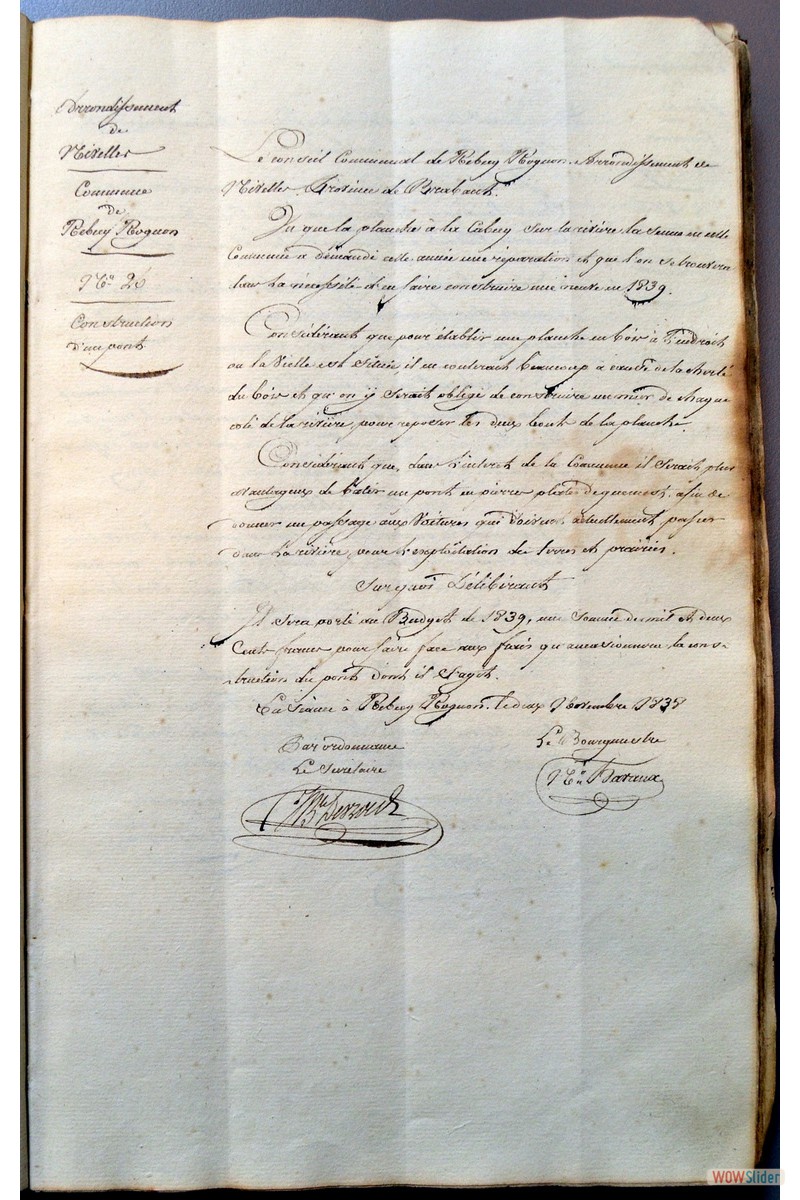 Arrondissement
de
Nivelles
Commune
de
Rebecq Rognon
N.o 26
Construction
d'un pont
Le conseil Communal de Rebecq Rognon. Arrondissement de
Nivelles. Province de Brabant.
Vu que la planche à la sur la rivière la Senne en cette
Commune a demandé cette année une réparation et que l'on se trouvera
dans la nécessité d'en faire construire une neuve en 1839.
Considérant que pour établir une planche en bois à l'endroit
ou la vielle est située il en couterait beaucoup à cause de la cherté
du bois et qu'on y serait obligé de construire un mur de chaque
coté de la rivière, pour reposer les deux bouts de la planche.
Considérant que, dans l'interet de la Commune il serait plus
avantageux de batir un pont en pierres plates de quenast, afin de
donner un passage aux voitures qui doivent actuellement passer
dans la rivière, pour l'exploitation des terres et prairies.
Sur quoi Délibérant
Il sera porté au Budget de 1839, une somme de mil et deux
Cents francs pour faire face aux frais qu'occasionnera la cons-
truction du pont dont il s'agit.
En séance à Rebecq Rognon. le deux Novembre 1838
Par ordonnance
Le Secrétaire
Le Bourgmestre